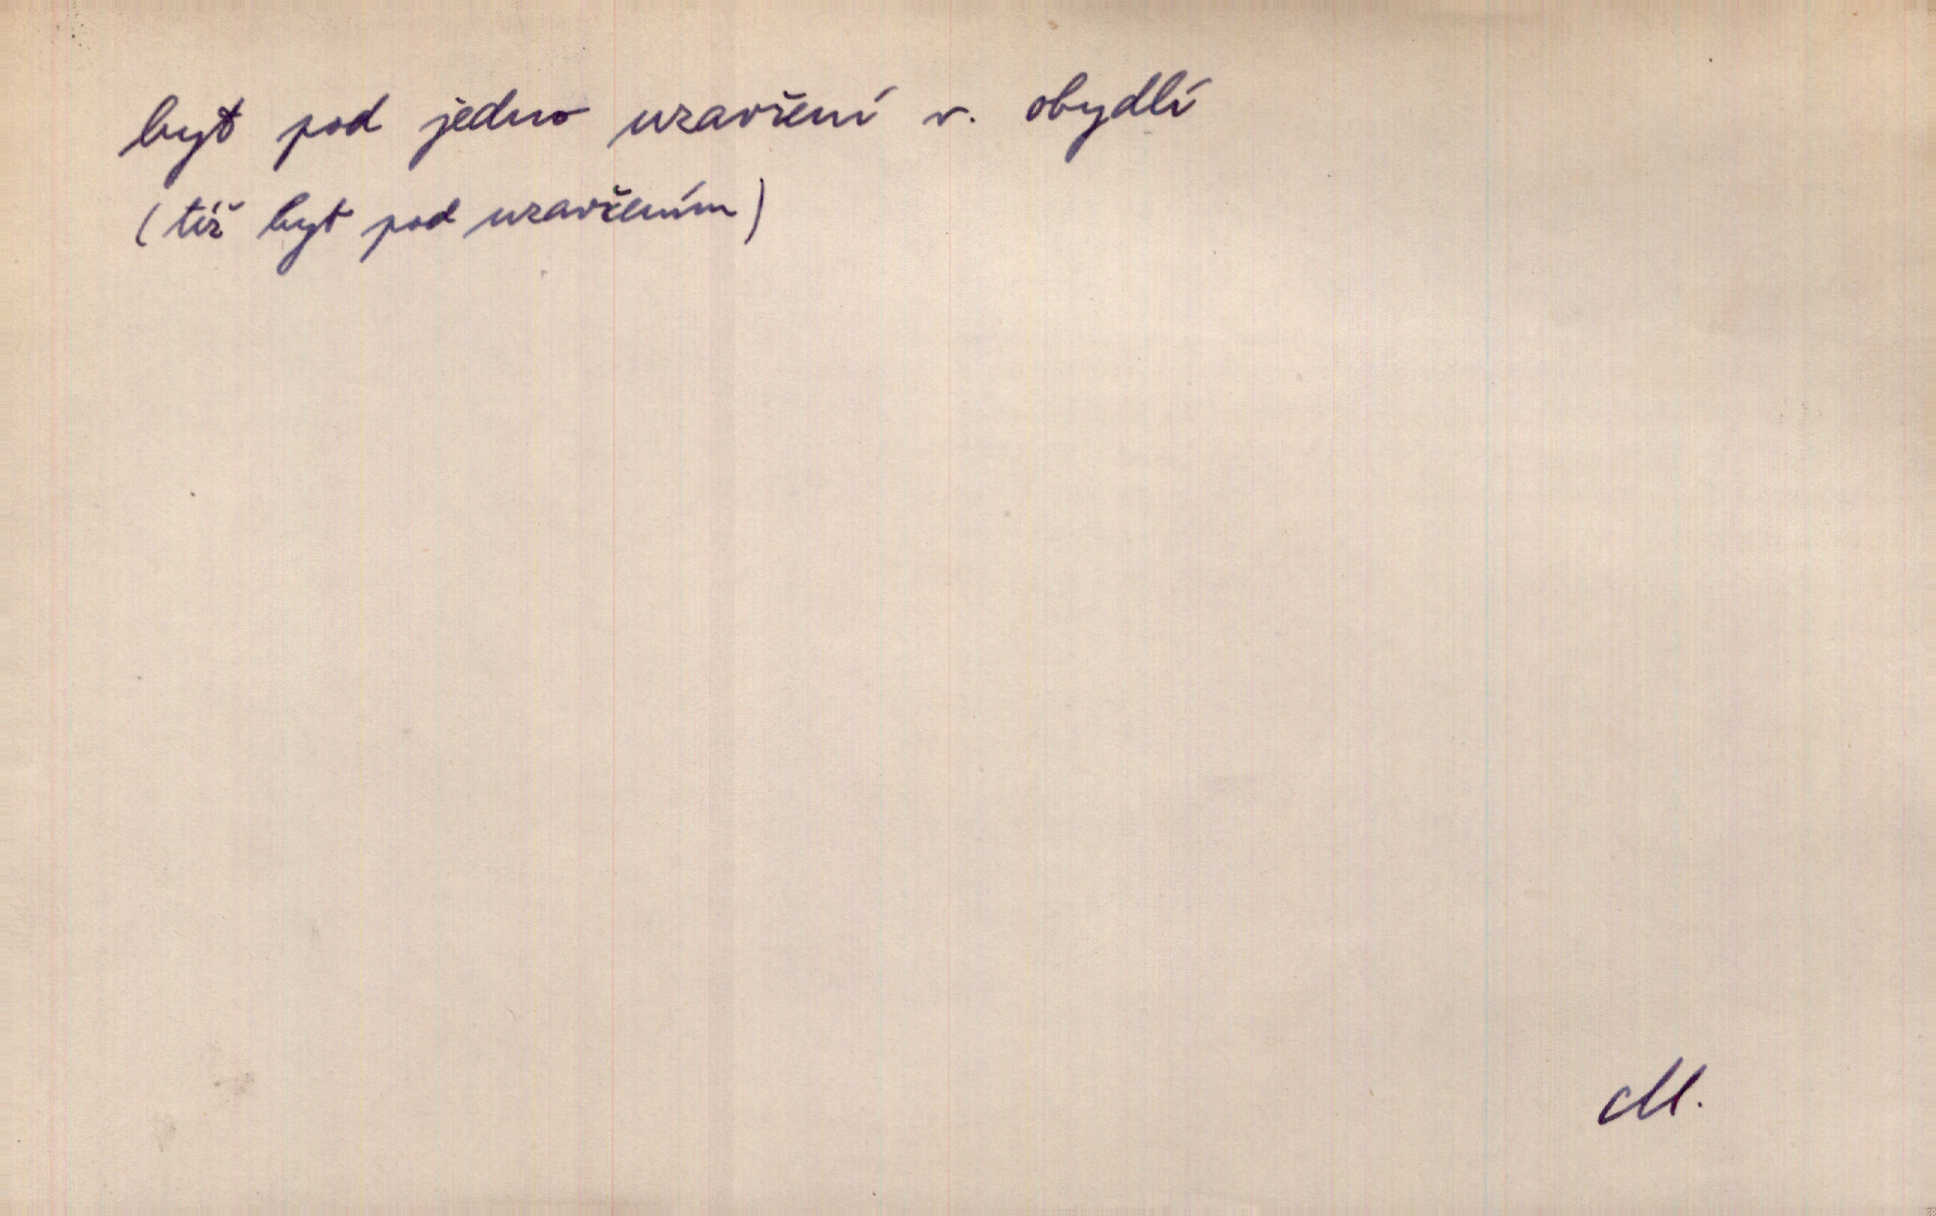 byt pod jedno uzavření v. obydlí
(též byt pod uzavřením)
M.